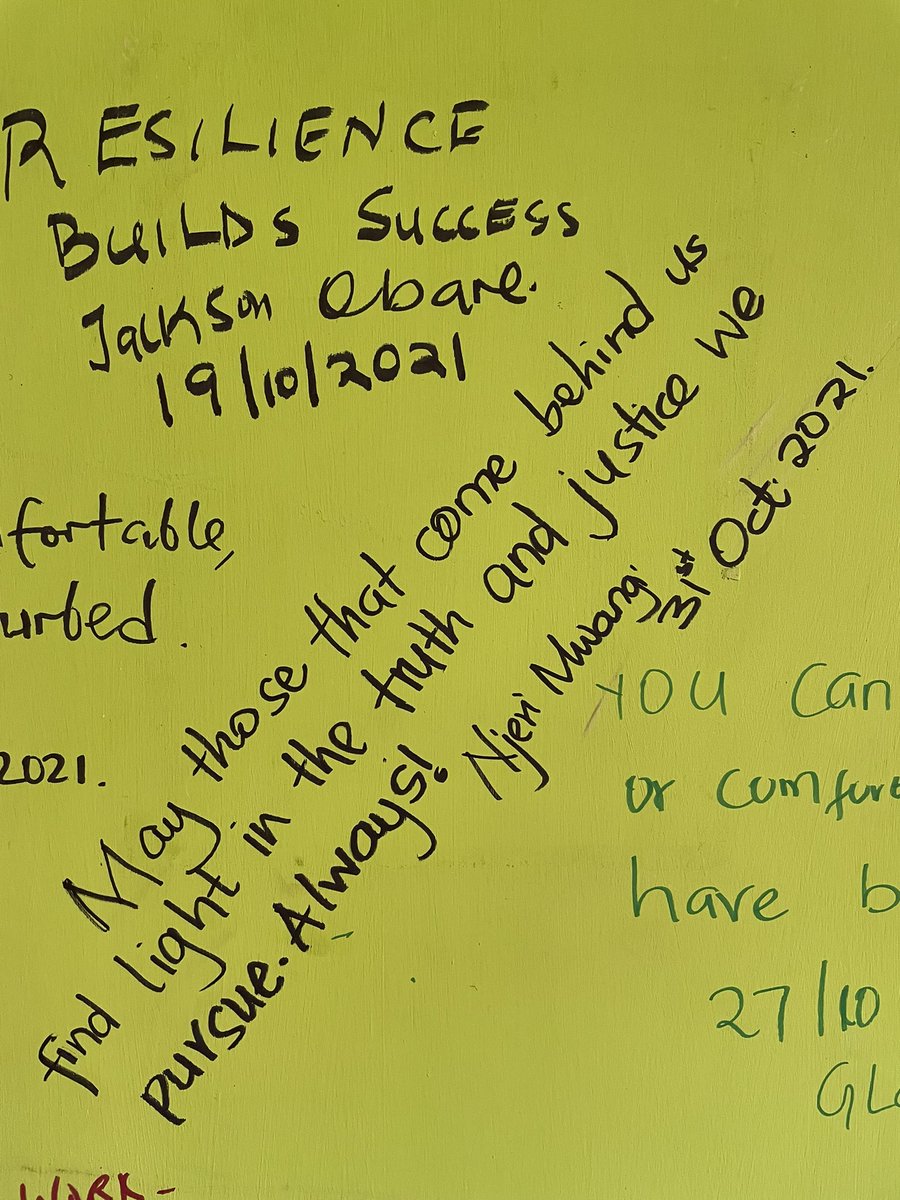 RESILIENCE
BUILDS SUCCESS
Jackson Obare.
19/10/2021
May those that come behind us
find light in the truth and justice we
pursue. Always!
Njeri Mwangi
31st Oct. 2021.
2021.
YOU Can
or
have
27/10
WORK-